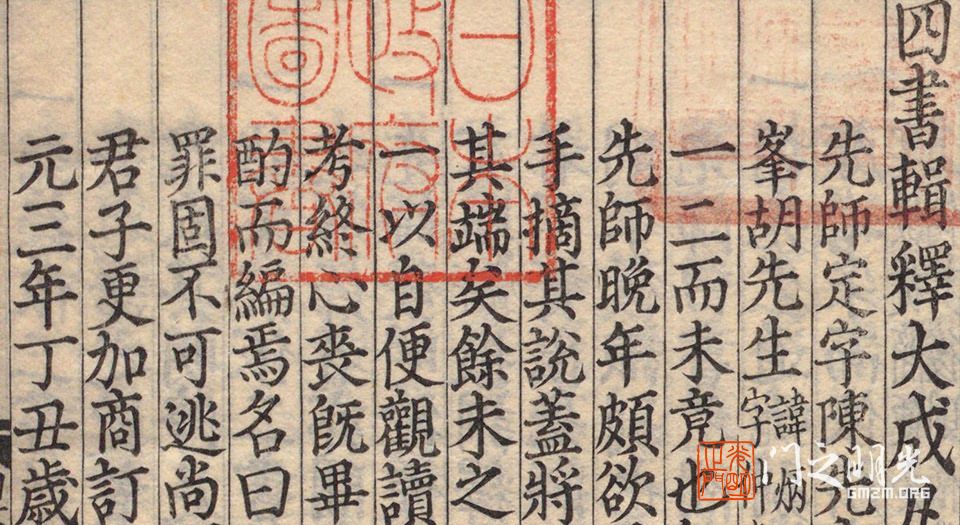 四書輯釋大成
先師定字陳先
峯胡先生諱炳字仲
一二而未竟也
先師晚年頗欲
手摘其說蓋將
其端矣餘未之
一以自便觀讀
考終心喪旣畢
酌而編焉名曰
罪固不可逃尚
君子更加商訂
元三年丁丑歲
门之明光
GMZM.ORG